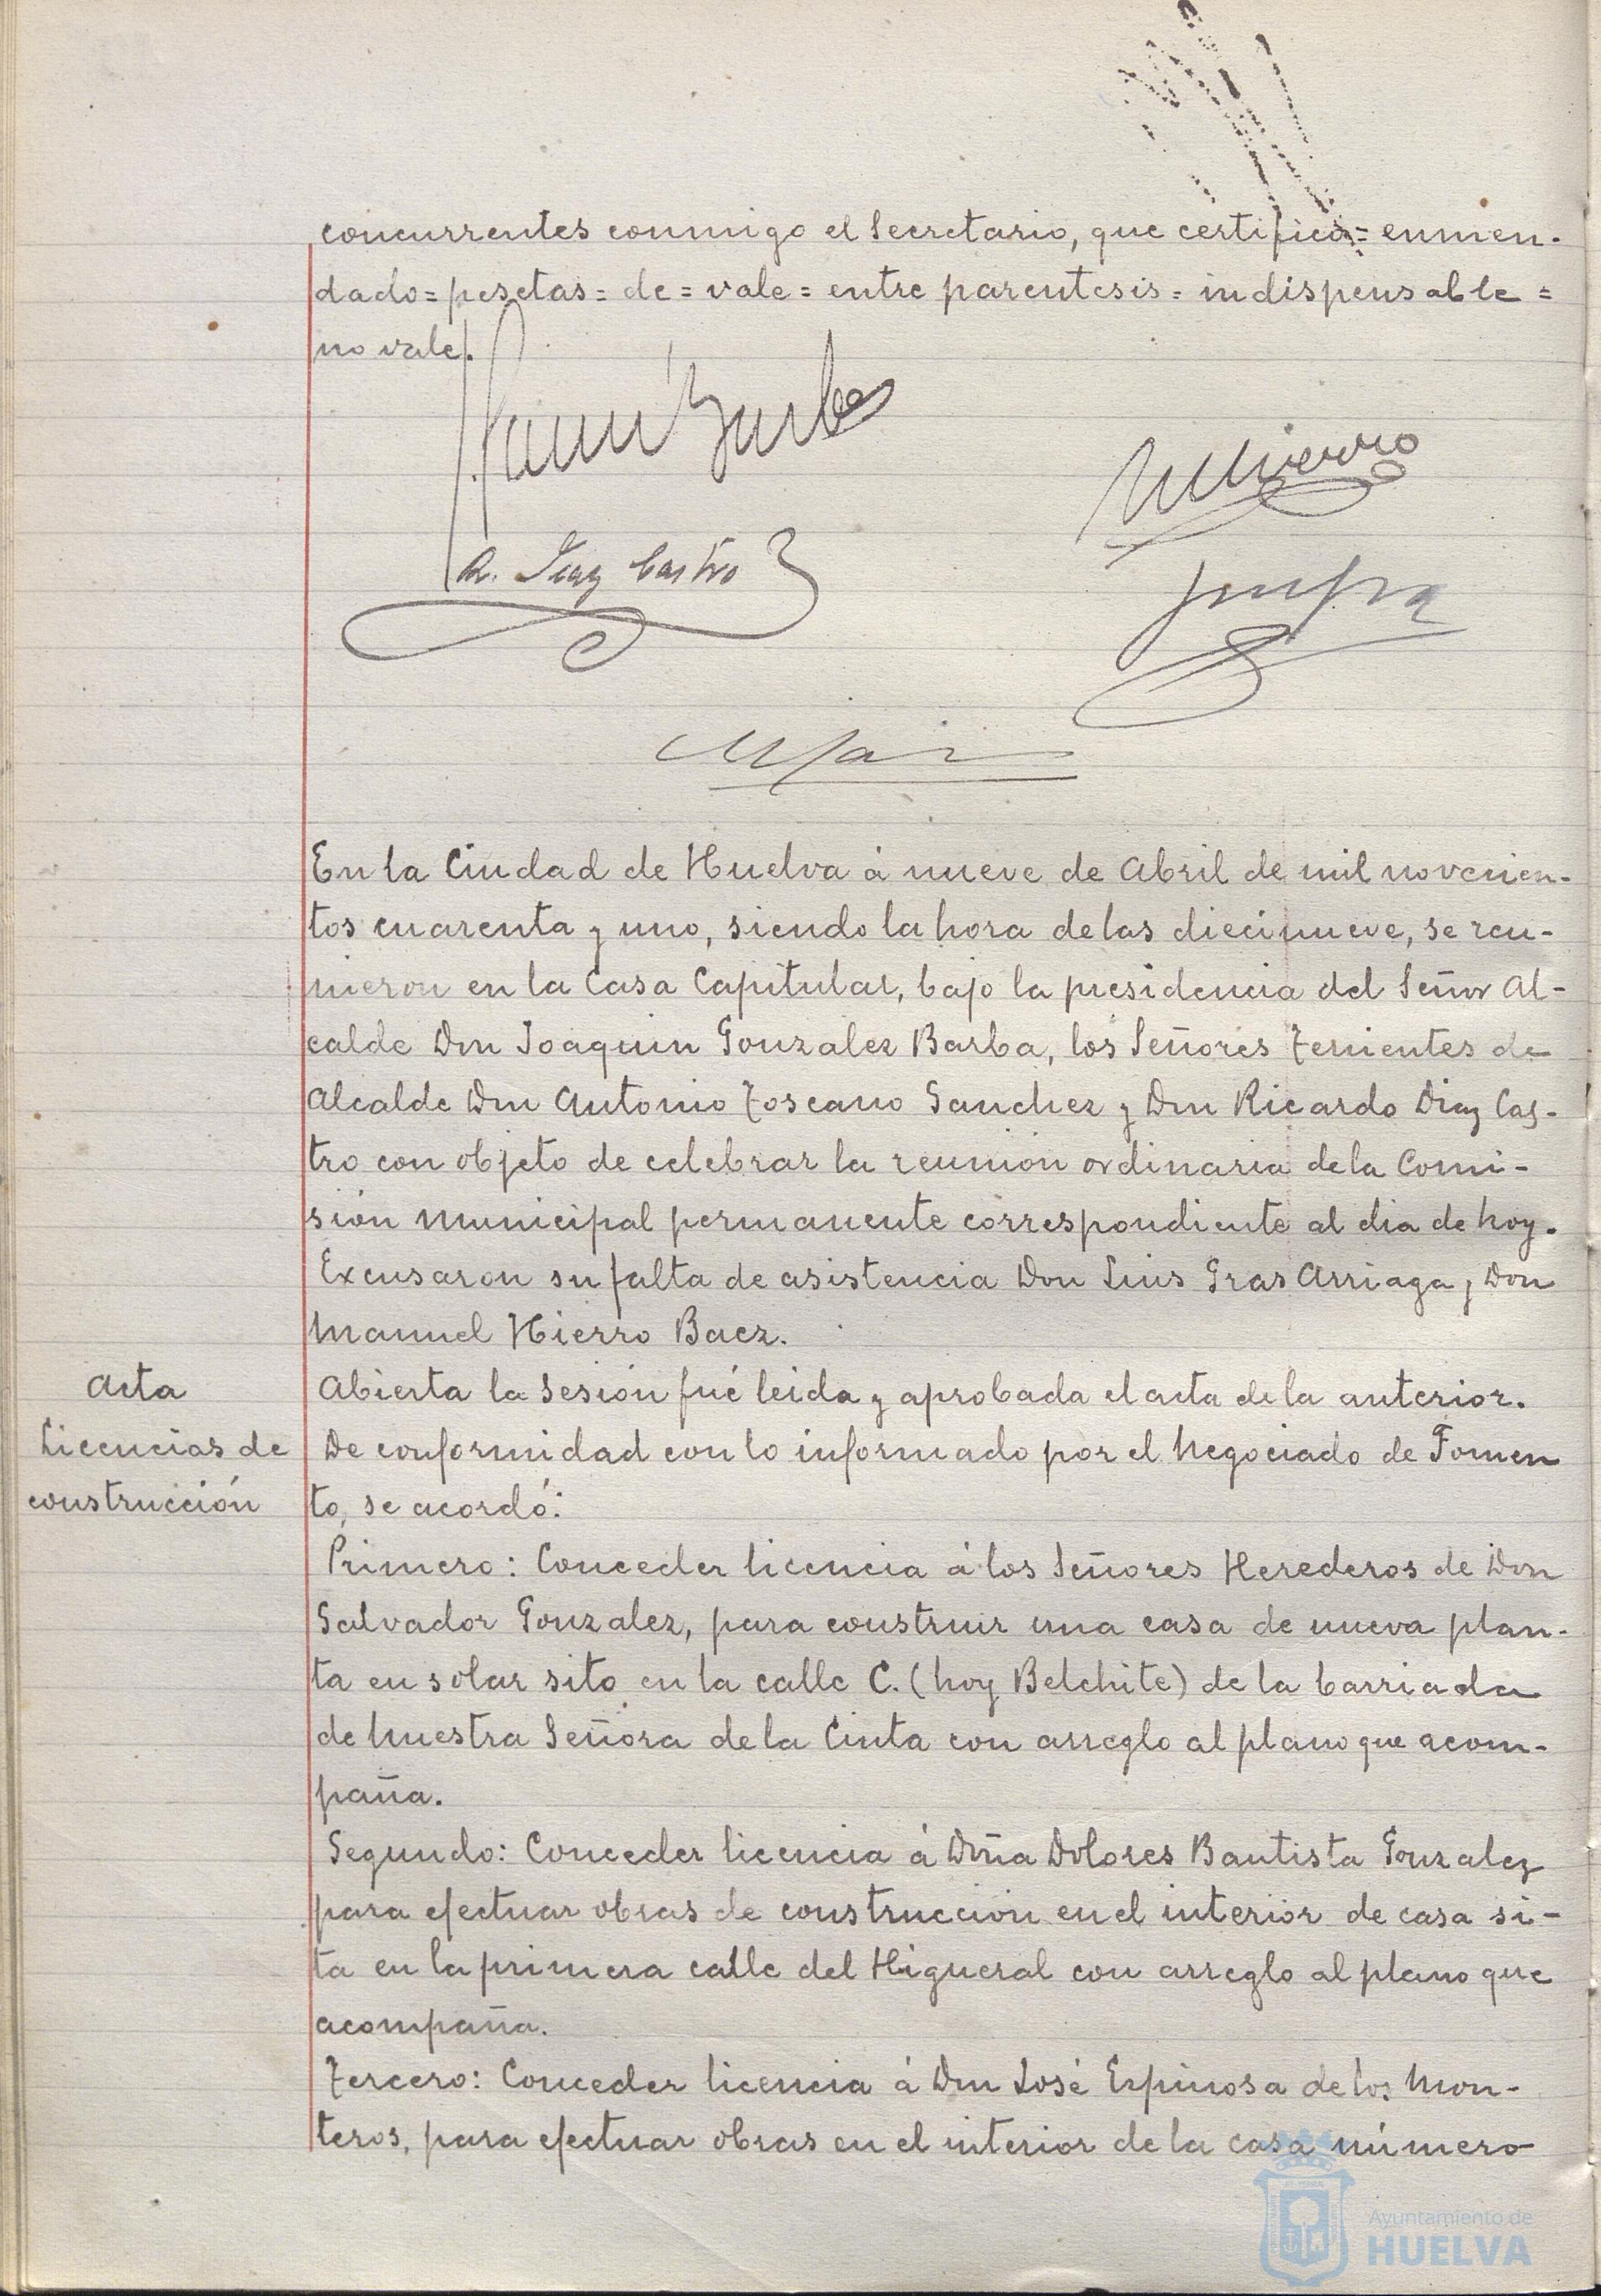 concurrentes conmigo el Secretario, que certifico = enmen-
dado = pesetas = de = vale = entre parentesis = indispensable =
no vale.
R. Diaz Castro
En la Ciudad de Huelva á nueve de Abril de mil novecien-
tos cuarenta y uno, siendo la hora de las diecinueve, se reu-
nieron en la Casa Capitular, bajo la presidencia del Señor Al-
calde Don Joaquin Gonzalez Barba, los Señores Tenientes de
Alcalde Don Antonio Toscano Sanchez y Don Ricardo Diaz Cas-
tro con objeto de celebrar la reunión ordinaria de la Comi-
sión municipal permanente correspondiente al dia de hoy.
Excusaron su falta de asistencia Don Luis Gras Arriaga y Don
Manuel Hierro Baez.
Acta
Abierta la Sesión fué leida y aprobada el acta de la anterior.
Licencias de
De conformidad con lo informado por el Negociado de Fomen
construcción
to, se acordó:
Primero: Conceder licencia á los Señores Herederos de Don
Salvador Gonzalez, para construir una casa de nueva plan-
ta en solar sito en la calle C. (hoy Belchite) de la barriada
de Nuestra Señora de la Cinta con arreglo al plano que acom-
paña.
Segundo: Conceder licencia á Doña Dolores Bautista Gonzalez
para efectuar obras de construcción en el interior de casa si-
ta en la primera calle del Higueral con arreglo al plano que
acompaña.
Tercero: Conceder licencia á Don José Espinosa de los Mon-
teros, para efectuar obras en el interior de la casa número
Ayuntamiento de
HUELVA